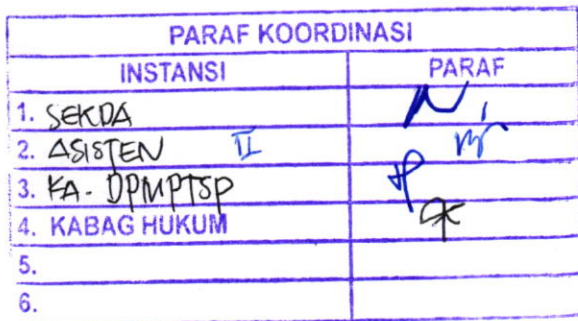 PARAF KOORDINASI
INSTANSI PARAF
1. SEKDA
2. ASISTEN II
3. KA. DPMPTSP
4. KABAG HUKUM
5.
6.